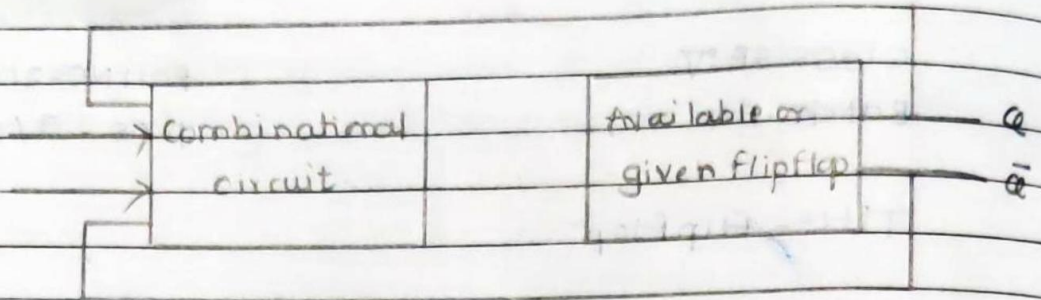 combinational
circuit
Available or
given flipflop
Q
Q̄